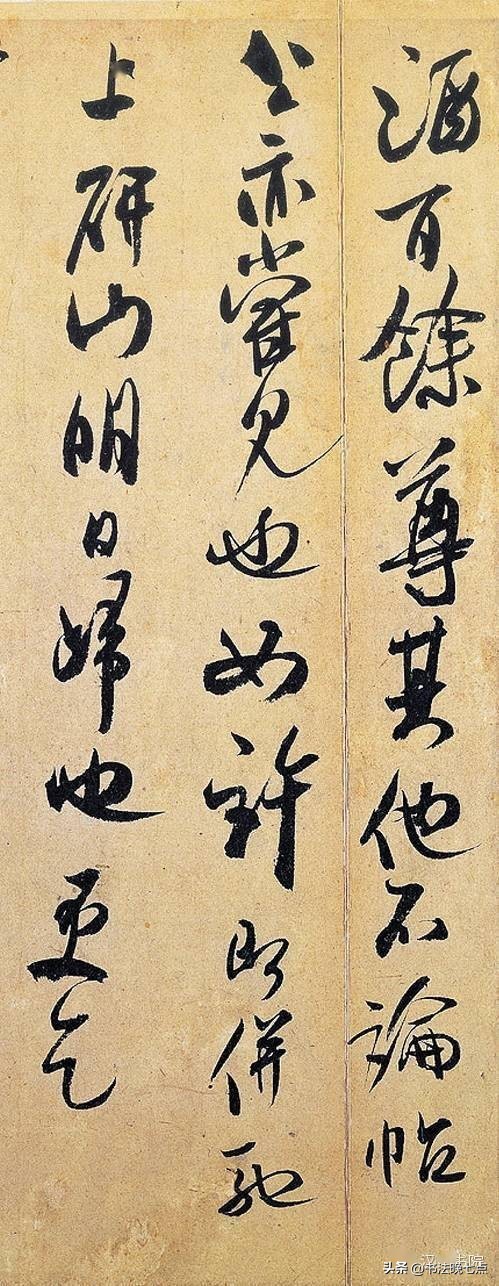 酒百餘尊其他不論帖
公亦嘗見也如許即併馳
上研山明日歸也更乞
头条 @书法晚七点